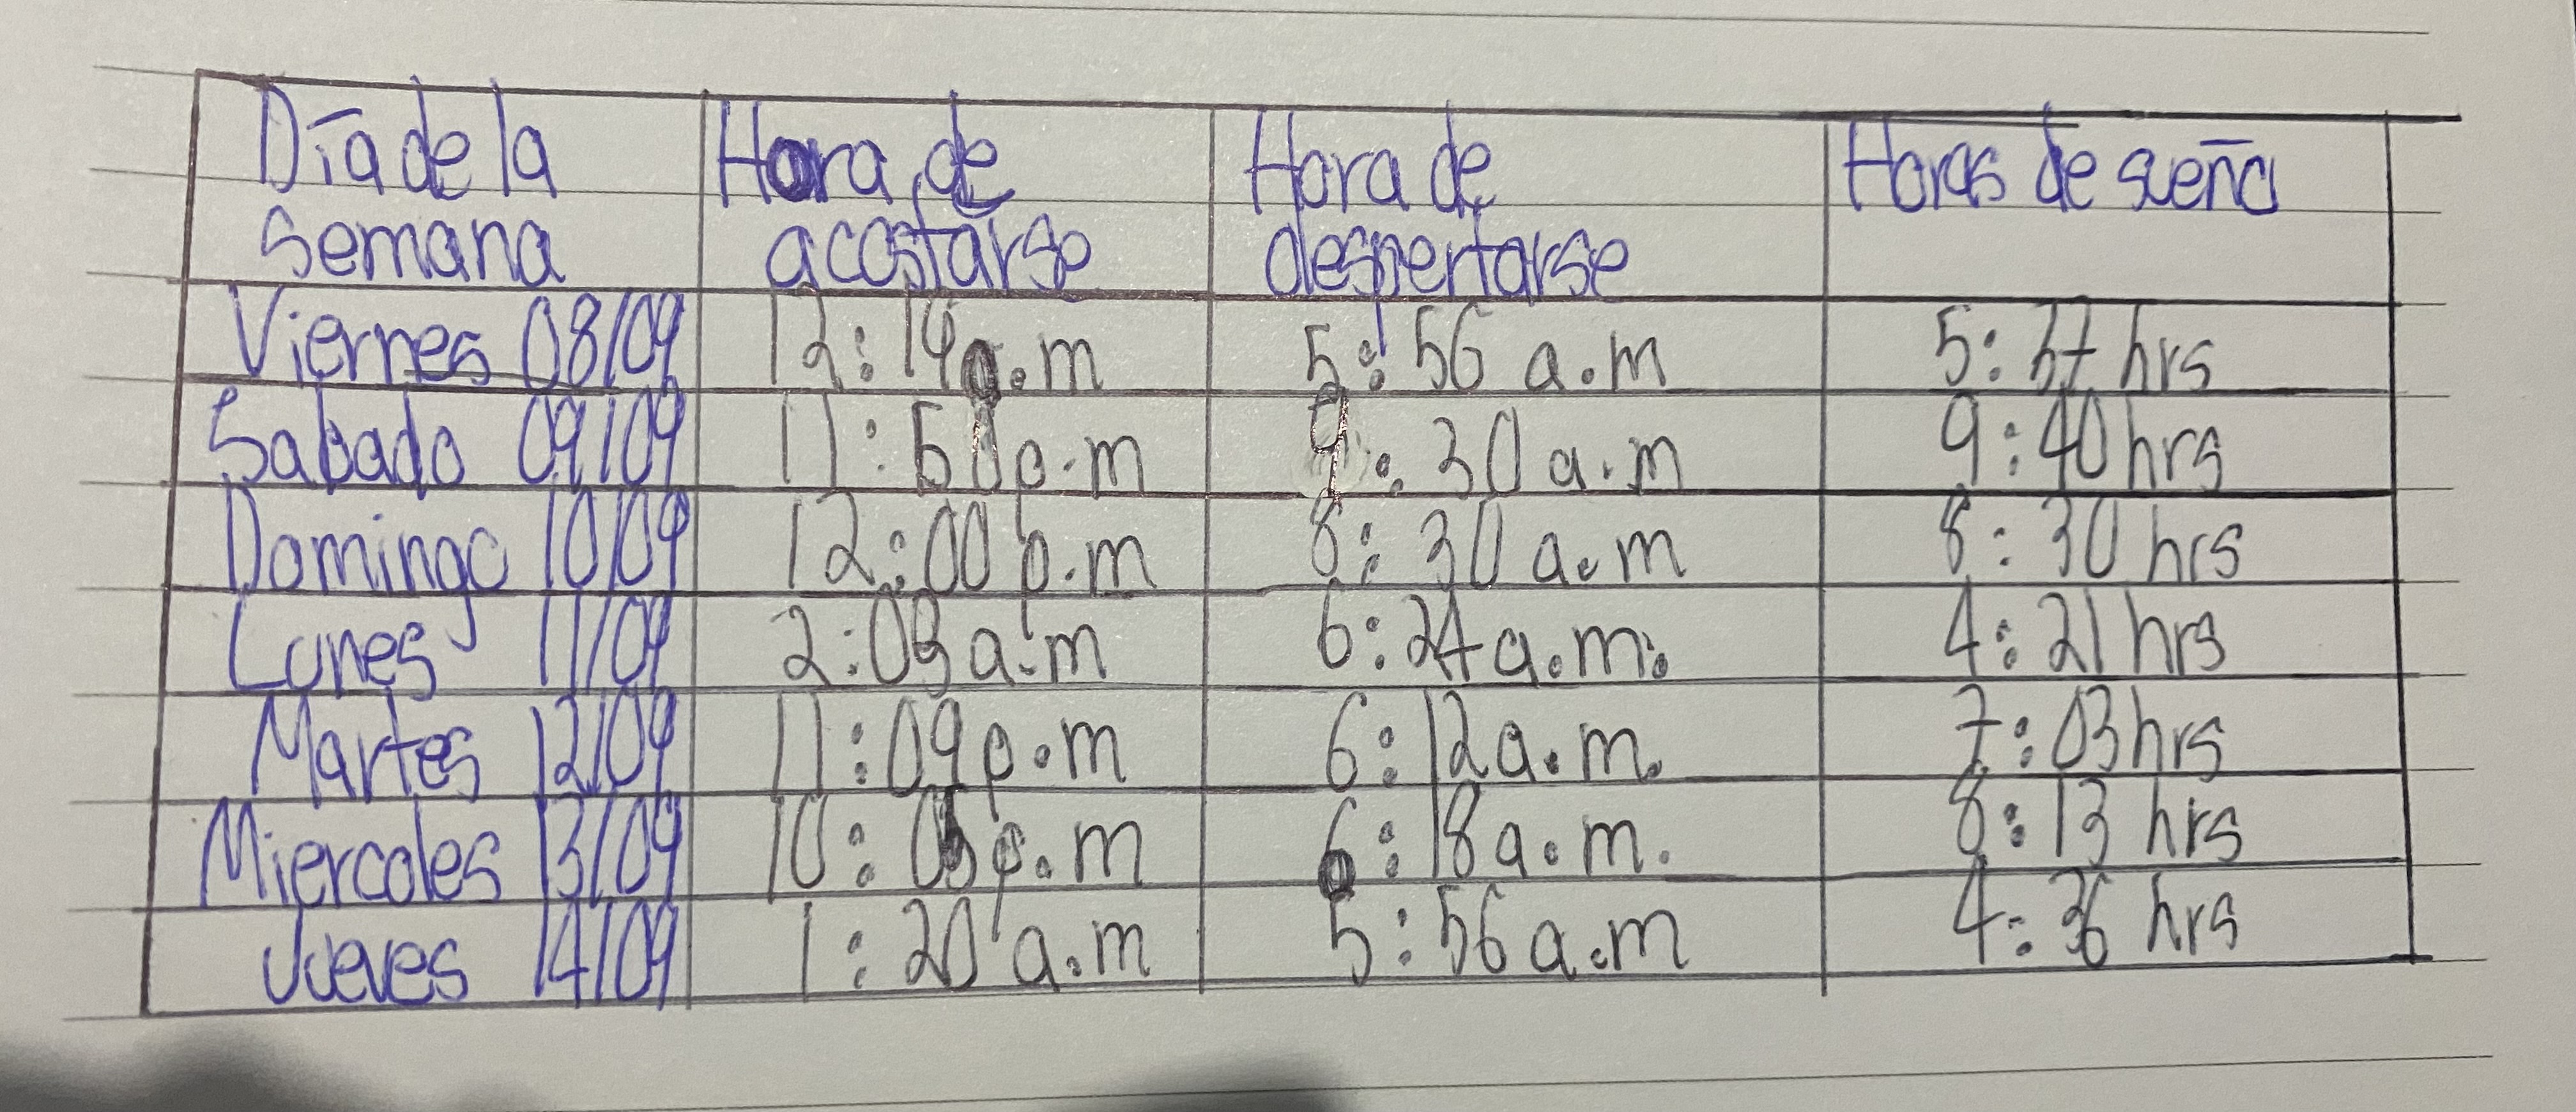 Día de la semana Hora de acostarse Hora de despertarse Horas de sueño
Viernes 08/09 12:19a.m 5:56 a.m 5:37 hrs
Sabado 09/09 11:50p.m 9:30 a.m 9:40 hrs
Domingo 10/09 12:00 p.m 8:30 a.m 8:30 hrs
Lunes 11/09 2:03 a.m 6:24 a.m. 4:21 hrs
Martes 12/09 11:09 p.m 6:12 a.m. 7:03 hrs
Miercoles 13/09 10:05 p.m 6:18 a.m. 8:13 hrs
Jueves 14/09 1:20 a.m 5:56 a.m 4:36 hrs